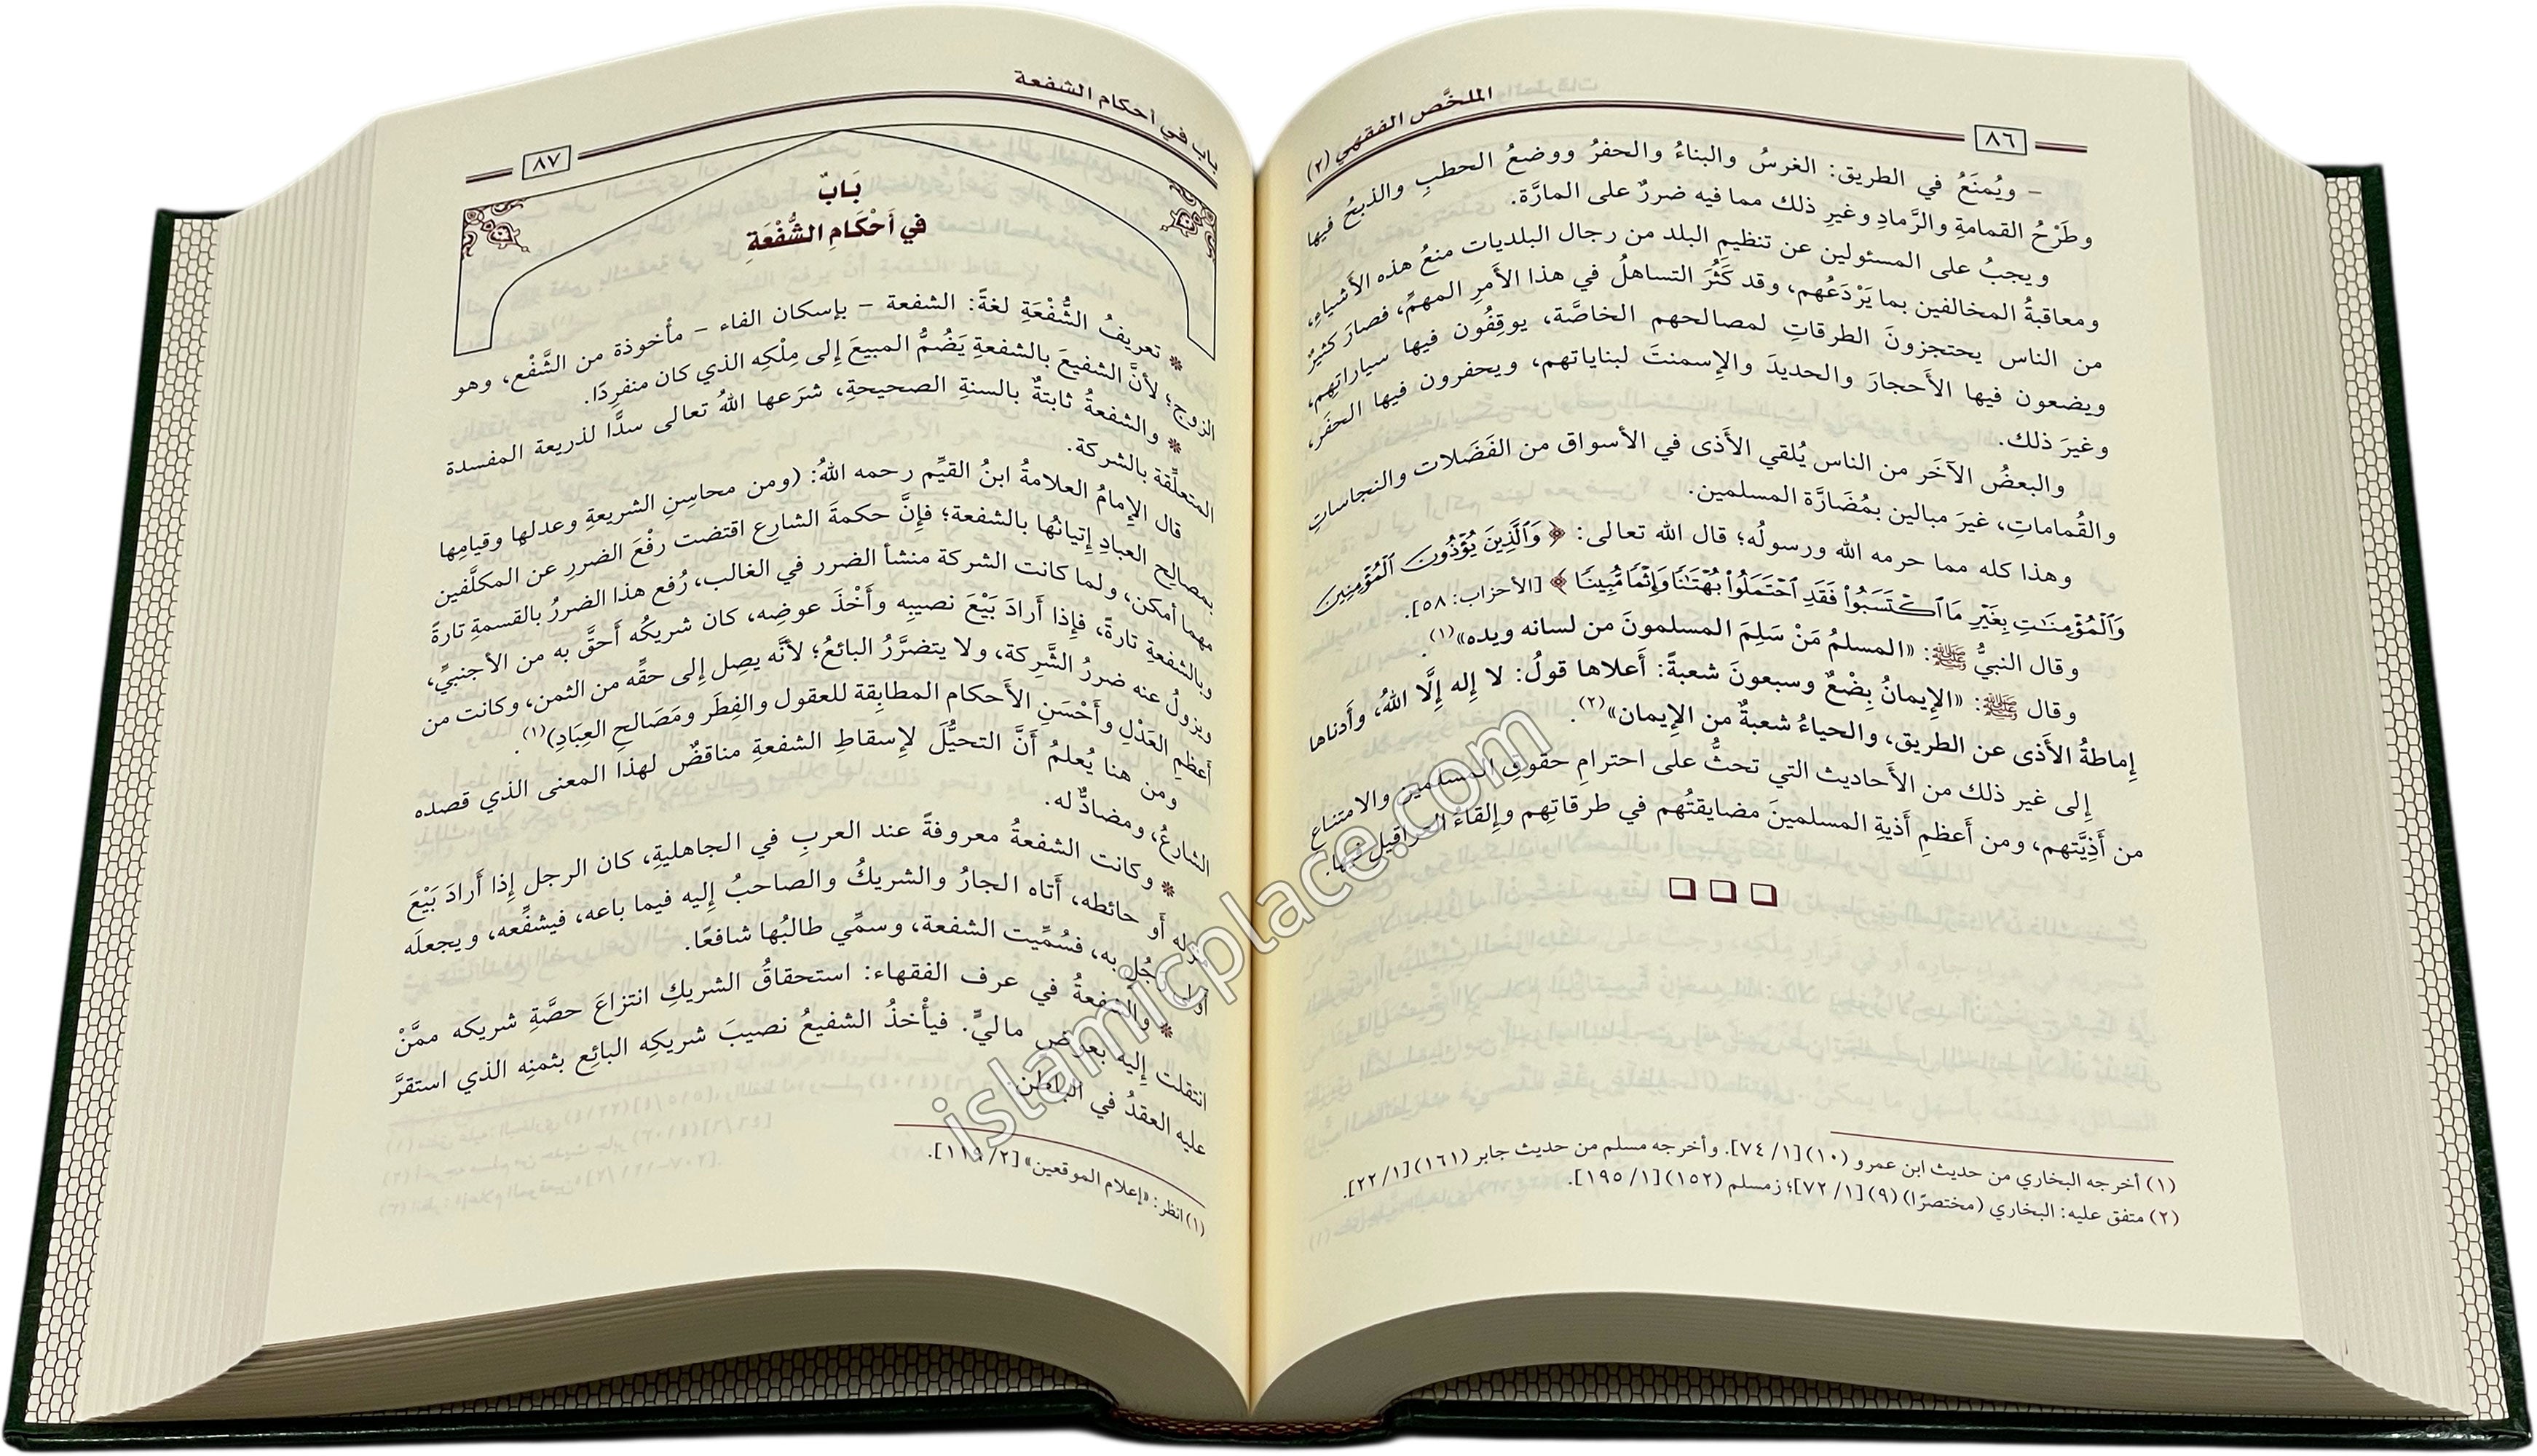 الملخَّص الفقهي (٢)
٨٦
– ويُمنَعُ في الطريق: الغرسُ والبناءُ والحفرُ ووضعُ الحطبِ والذبحُ فيها
وطَرْحُ القمامةِ والرَّمادِ وغيرِ ذلك مما فيه ضررٌ على المارَّة.
ويجبُ على المسئولين عن تنظيمِ البلد من رجال البلديات منعُ هذه الأَشياءِ،
ومعاقبةُ المخالفين بما يَرْدَعُهم، وقد كَثُرَ التساهلُ في هذا الأَمرِ المهمِّ، فصارَ كثيرٌ
من الناس يحتجزونَ الطرقاتِ لمصالحهم الخاصَّة، يوقِفُون فيها سياراتِهم،
ويضعون فيها الأَحجارَ والحديدَ والإِسمنتَ لبناياتهم، ويحفرون فيها الحفَر،
وغيرَ ذلك.
والبعضُ الآخَر من الناس يُلقي الأَذى في الأسواق من الفَضَلات والنجاساتِ
والقُماماتِ، غيرَ مبالين بمُضَارَّة المسلمين.
وهذا كله مما حرمه الله ورسولُه؛ قال الله تعالى: ﴿ وَٱلَّذِينَ يُؤْذُونَ ٱلْمُؤْمِنِينَ
وَٱلْمُؤْمِنَٰتِ بِغَيْرِ مَا ٱكْتَسَبُوا۟ فَقَدِ ٱحْتَمَلُوا۟ بُهْتَٰنًا وَإِثْمًا مُّبِينًا ﴾ [الأحزاب: ٥٨].
وقال النبيُّ ﷺ: «المسلمُ مَنْ سَلِمَ المسلمونَ من لسانه ويده»(١).
وقال ﷺ: «الإِيمانُ بِضْعٌ وسبعونَ شعبةً: أَعلاها قولُ: لا إِله إِلَّا اللهُ، وأَدناها
إِماطةُ الأَذى عن الطريق، والحياءُ شعبةٌ من الإِيمان»(٢).
إِلى غير ذلك من الأَحاديث التي تحثُّ على احترامِ حقوقِ المسلمين والامتناع
من أَذِيَّتهم، ومن أَعظمِ أَذيةِ المسلمينَ مضايقتُهم في طرقاتِهم وإِلقاءُ العراقيل فيها.
(١) أخرجه البخاري من حديث ابن عمرو (١٠)[١/ ٧٤]. وأخرجه مسلم من حديث جابر (١٦١)[١/ ٢٢].
(٢) متفق عليه: البخاري (مختصرًا) (٩)[١/ ٧٢]؛ زمسلم (١٥٢)[١/ ١٩٥].
باب في أحكام الشفعة
٨٧
بَابٌ
في أَحْكَامِ الشُّفْعَةِ
* تعريفُ الشُّفْعَةِ لغةً: الشفعة – بإسكان الفاء – مأْخوذة من الشَّفْع، وهو
الزوج؛ لأنَّ الشفيعَ بالشفعةِ يَضُمُّ المبيعَ إِلى مِلْكِه الذي كان منفرِدًا.
* والشفعةُ ثابتةٌ بالسنةِ الصحيحةِ، شرَعها اللهُ تعالى سدًّا لذريعة المفسدة
المتعلِّقة بالشركة.
قال الإِمامُ العلامةُ ابنُ القيِّم رحمه اللهُ: (ومن محاسِنِ الشريعةِ وعدلِها وقيامِها
بمصالح العبادِ إِتيانُها بالشفعة؛ فإِنَّ حكمةَ الشارِع اقتضت رفْعَ الضررِ عن المكلَّفين
مهما أمكن، ولما كانت الشركة منشأ الضرر في الغالب، رُفع هذا الضررُ بالقسمةِ تارةً
وبالشفعةِ تارةً، فإِذا أَرادَ بَيْعَ نصيبِه وأَخْذَ عوضِه، كان شريكُه أَحقَّ به من الأجنبيِّ،
ويزولُ عنه ضررُ الشَّرِكة، ولا يتضرَّرُ البائعُ؛ لأنَّه يصِل إِلى حقِّه من الثمن، وكانت من
أعظمِ العَدْلِ وأَحْسَنِ الأَحكام المطابِقة للعقول والفِطَر ومَصَالحِ العِبَادِ)(١).
ومن هنا يُعلمُ أَنَّ التحيُّلَ لإِسقاطِ الشفعةِ مناقضٌ لهذا المعنى الذي قصده
الشارعُ، ومضادٌّ له.
* وكانت الشفعةُ معروفةً عند العربِ في الجاهليةِ، كان الرجل إِذا أَرادَ بَيْعَ
منزله أَو حائطه، أَتاه الجارُ والشريكُ والصاحبُ إِليه فيما باعه، فيشفِّعه، ويجعلَه
أولى به، فسُمِّيت الشفعة، وسمِّي طالبُها شافعًا.
* والشفعةُ في عرف الفقهاء: استحقاقُ الشريكِ انتزاعَ حصَّةِ شريكه ممَّنْ
انتقلت إِليه بعوض ماليٍّ. فيأْخذُ الشفيعُ نصيبَ شريكِه البائِع بثمنِه الذي استقرَّ
عليه العقدُ في الباطن.
(١) انظر: «إعلام الموقعين» [٢/ ١١٩].
islamicplace.com